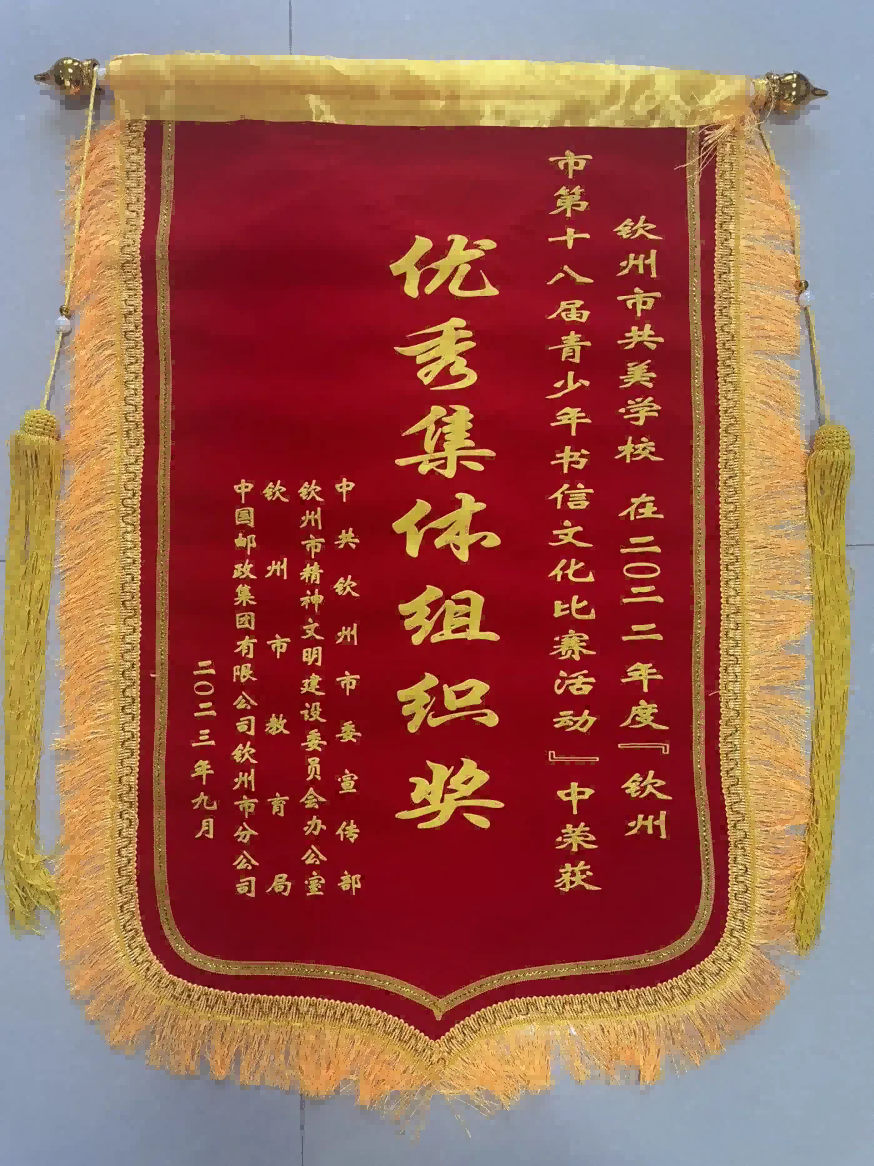 钦州市共美学校 在二〇二二年度『钦州
市第十八届青少年书信文化比赛活动』中荣获
优秀集体组织奖
中共钦州市委宣传部
钦州市精神文明建设委员会办公室
钦州市教育局
中国邮政集团有限公司钦州市分公司
二〇二三年九月